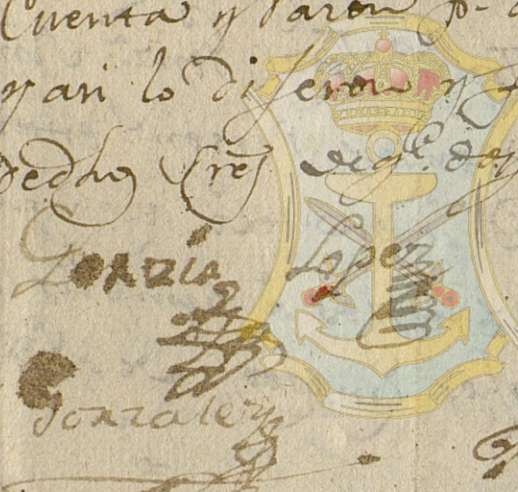 Cuenta y Razon p.
y asi lo dijeron y
dedhos Sres de q.e doy
Garzia Lopez
Gonzalez